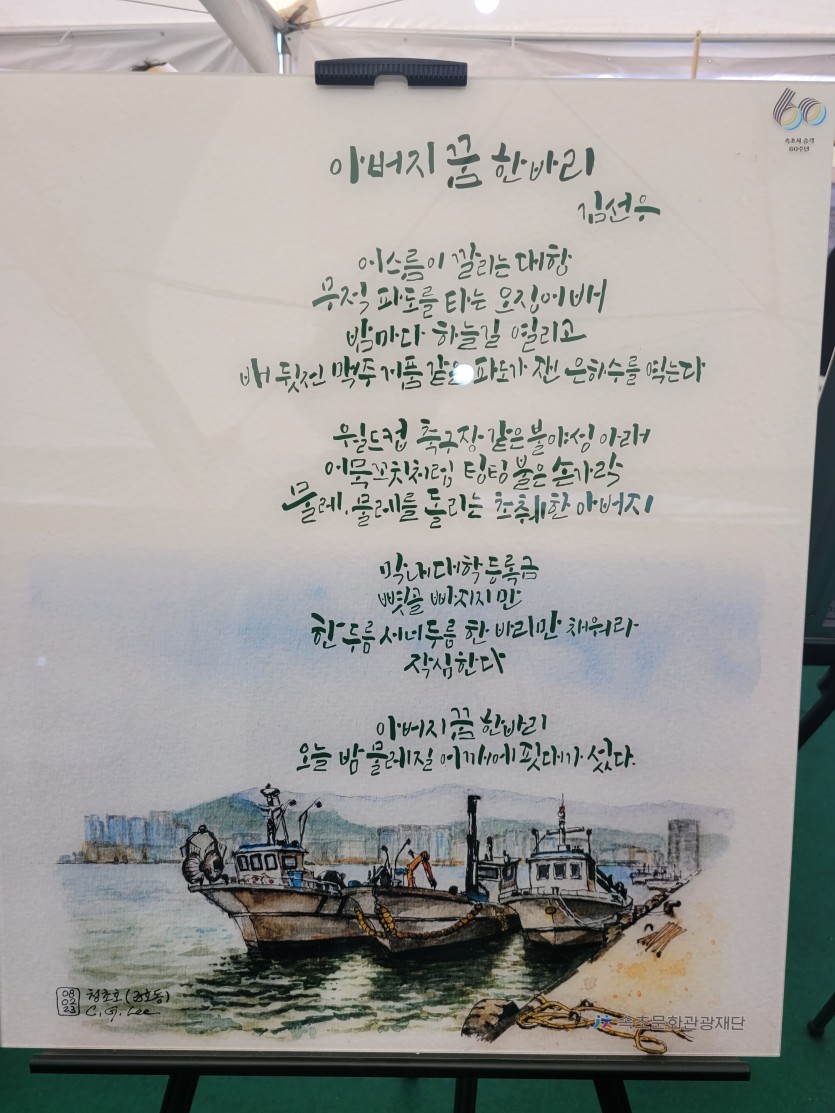 60
속초시 승격
60주년
아버지 꿈 한바리
김선우
어스름이 깔리는 대항
무적 파도를 타는 오징어 배
밤마다 하늘길 열리고
배 뒷전 맥주 거품 같은 파도가 잰 은하수를 엮는다
월드컵 축구장 같은 불야성 아래
어묵꼬치처럼 팅팅 불은 손가락
물레, 물레를 돌리는 초췌한 아버지
막내 대학 등록금
뼛골 빠지지만
한 두름 서너 두름 한 바리만 채워라
작심한다
아버지 꿈 한바리
오늘 밤 물레질 어깨에 핏대가 섰다.
08
02
23
청초호 (청호동)
C. G. Lee
속초문화관광재단